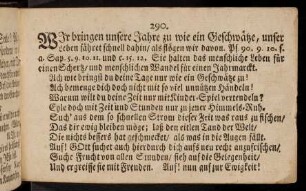 290.
WJr bringen unsere Jahre zu wie ein Geschwätze, unser
Leben fähret schnell dahin/ als flögen wir davon. Ps. 90. 9. 10. s.
a. Sap. 5. 9. 10. 11. und c. 15. 12. Sie halten das menschliche Leben für
einen Schertz/ und menschlichen Wandel für einen Jahrmarckt.
Ach wie bringst du deine Tage nur wie ein Geschwätze zu!
Ach bemenge dich doch nicht mit so viel unnützen Händeln!
Warum wilt du deine Zeit nur mit Kinder-Spiel vertendeln?
Eyle doch mit Zeit und Stunden nur zu jener Himmels-Ruh.
Such' aus dem so schnellen Strom dieser Zeit was raus zu fischen/
Das dir ewig bleiben möge; laß den eitlen Tand der Welt/
Die nichts bessers hat zu schmecken/ als was in die Augen fällt.
Auf! GOtt suchet auch hierdurch dich aufs neu recht anzufrischen/
Suche Frucht von allen Stunden/ sieh auf die Gelegenheit/
Und ergreiffe sie mit Freuden. Auf! nun auf zur Ewigkeit!